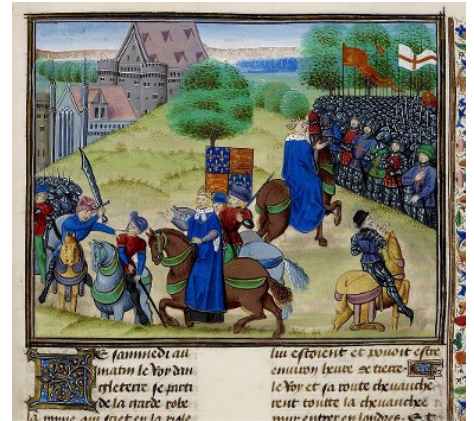 Le sammedi au
matin le Roy dan
gleterre se parti
de la garde robe
lui estoient et pouoit estre
environ heure de tierce
le Roy et sa route chevauche
rent toutte la chevauchee
pour entrer en londres. Et